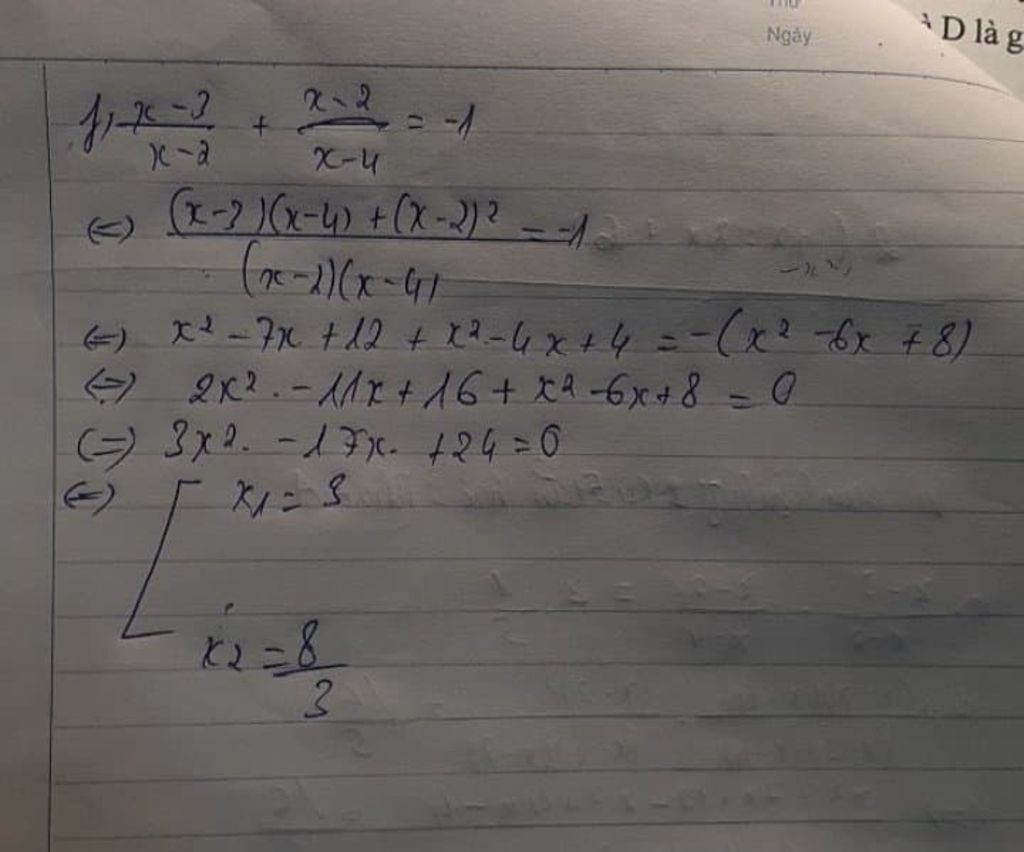 Thứ
Ngày
D là g
f, \frac{x-3}{x-2} + \frac{x-2}{x-4} = -1
(=) \frac{(x-3)(x-4) + (x-2)^2}{(x-2)(x-4)} = -1
(=) x^2 - 7x + 12 + x^2 - 4x + 4 = -(x^2 - 6x + 8)
(=) 2x^2 - 11x + 16 + x^2 - 6x + 8 = 0
(=) 3x^2 - 17x + 24 = 0
(=) [ x1 = 3
x2 = \frac{8}{3}